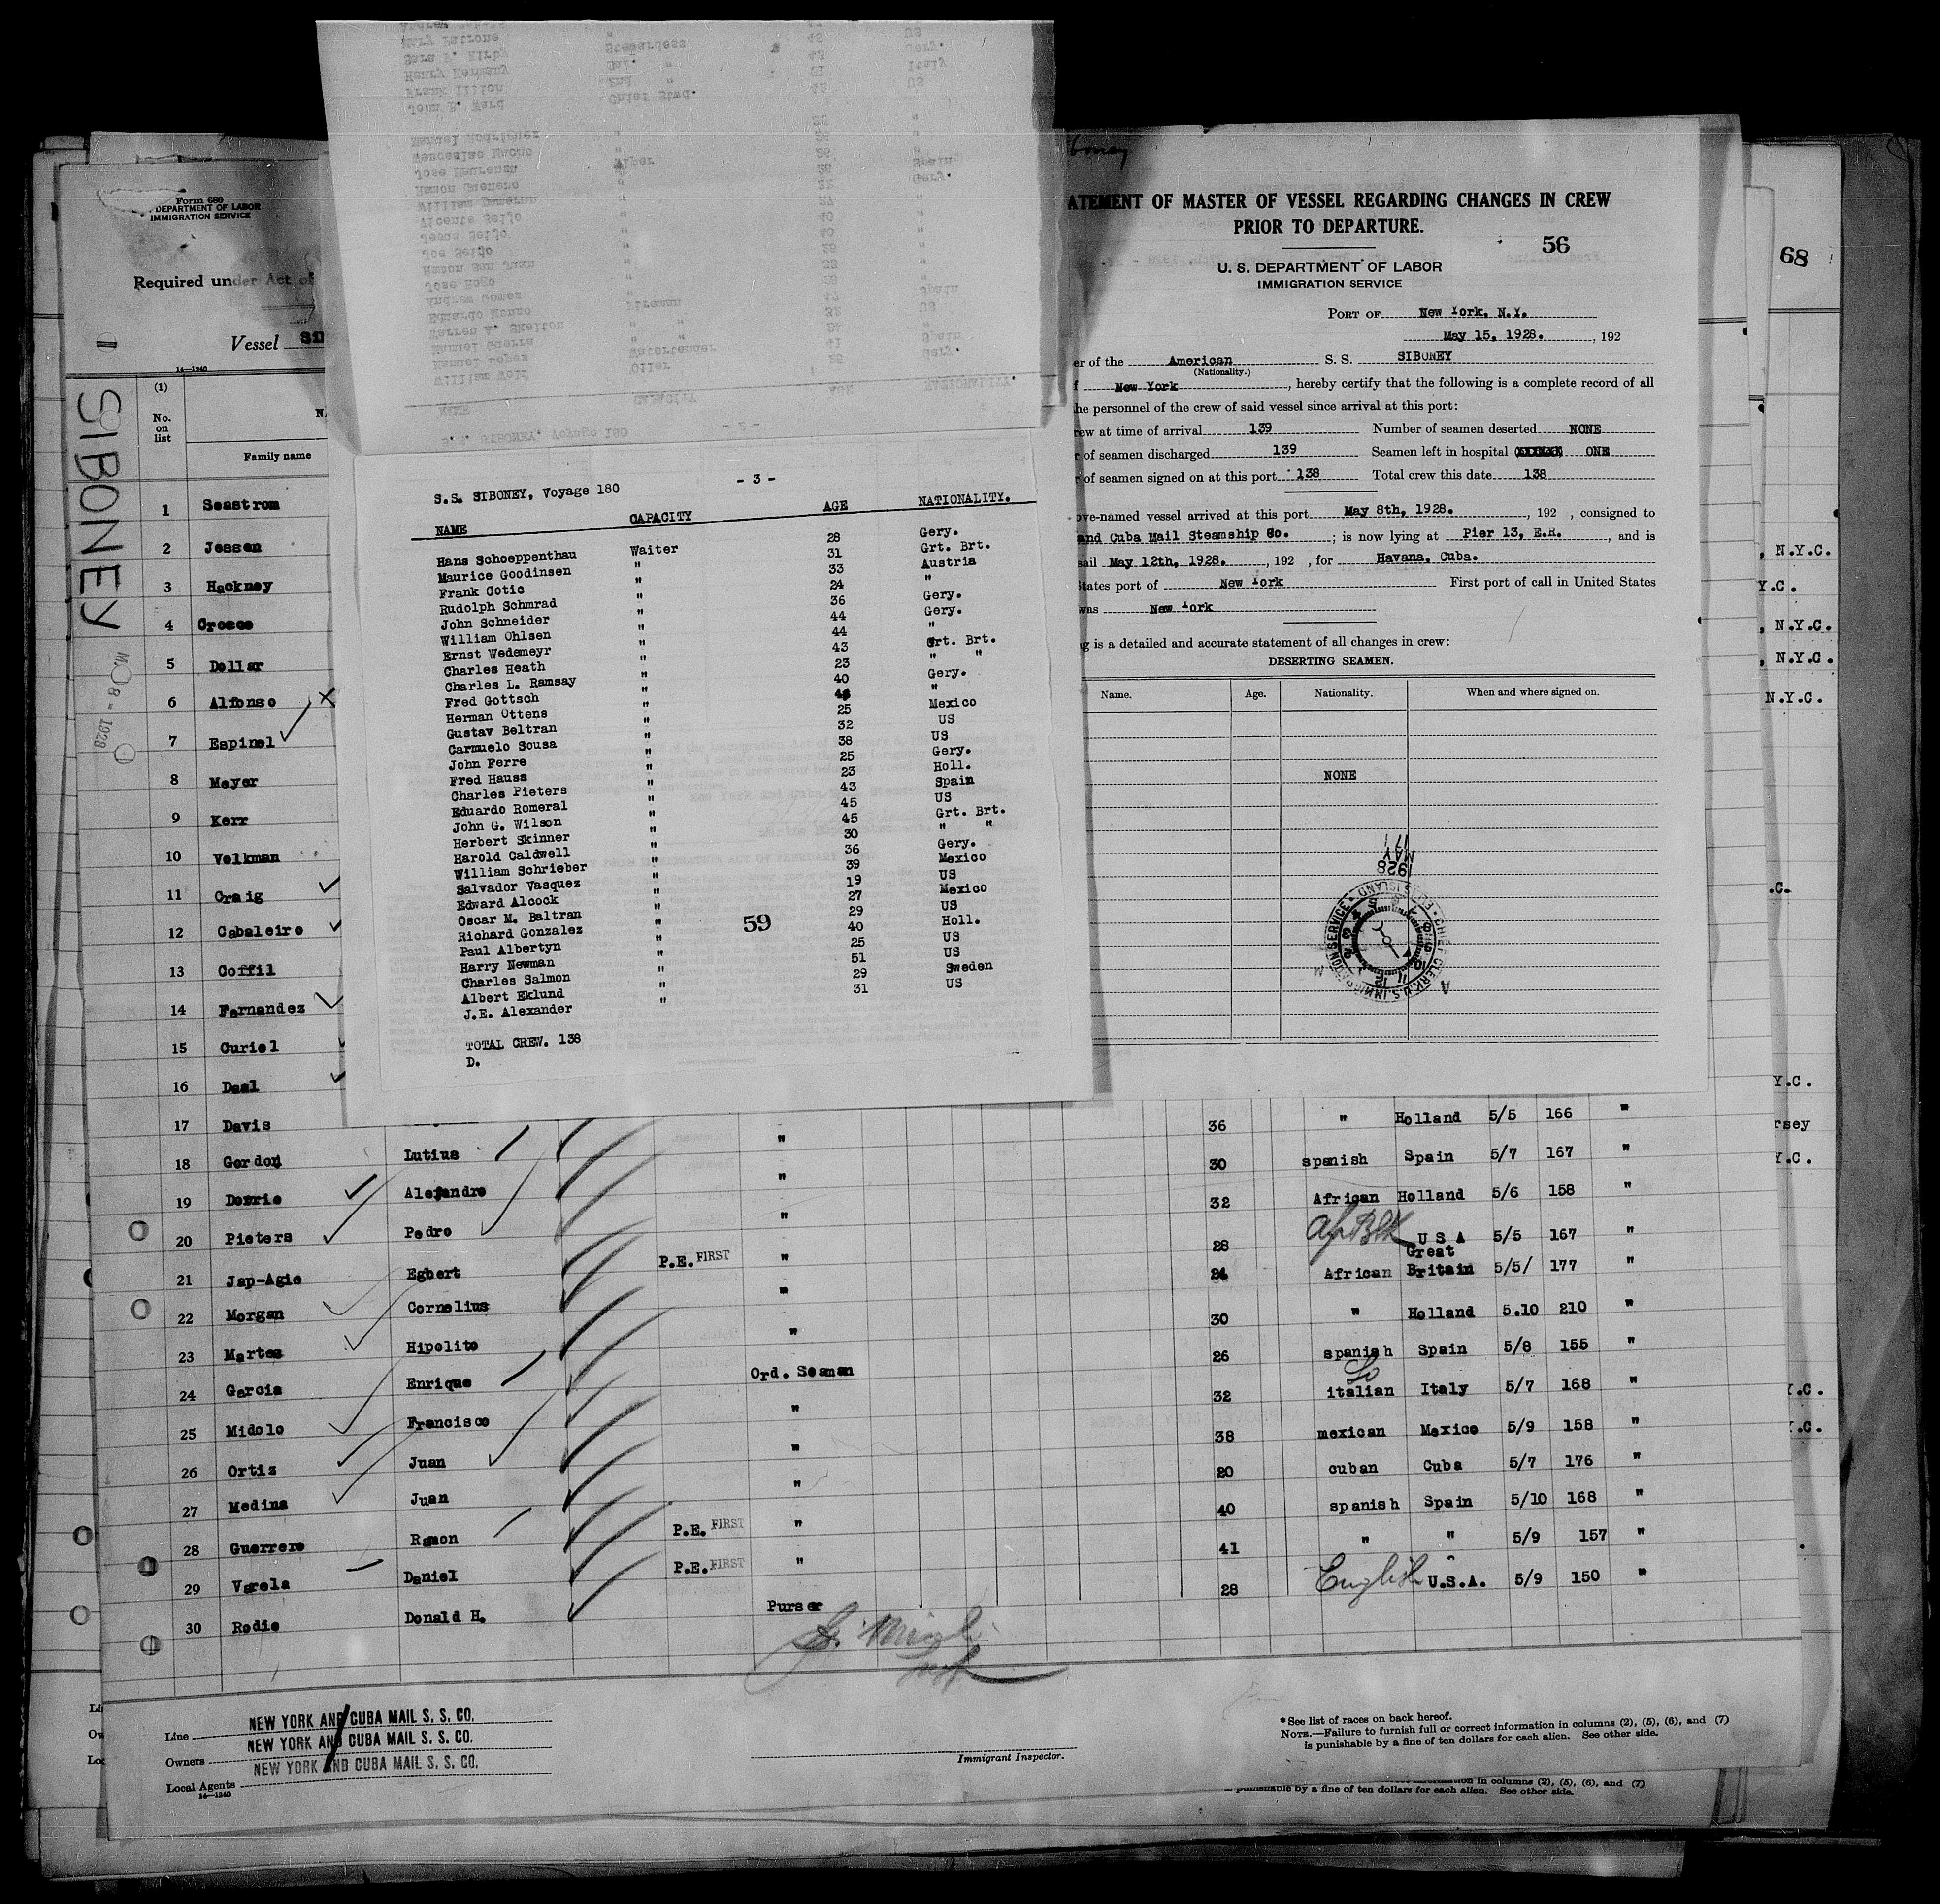 Form 680
DEPARTMENT OF LABOR
IMMIGRATION SERVICE
Required under Act of
Vessel
14—1240
SIBONEY
(1)
No. on list
Family name
1 Seastrom
2 Jessen
3 Hackney
4 Crosee
5 Dollar
6 Alfonso
7 Espinel
8 Meyer
9 Kerr
10 Volkman
11 Craig
12 Cabaleiro
13 Coffil
14 Fernandez
15 Curiel
16 Daal
17 Davis
S.S. SIBONEY, Voyage 180 - 2 -
NAME CAPACITY AGE NATIONALITY.
William Welz Oiler 25 Gery.
Manuel Lopez Watertender 41 Spain
Manuel Guerra " "
Warren A. Skelton " US
Eduardo Alonso Fireman Spain
Andrew Gomez "
Jose Rogo "
Ramon San Juan "
Joe Seijo "
Jesus Seijo " 40 "
Vicente Seijo " 40 "
William Dameran " Gery.
Ramon Guenero " Spain
Jose Maurenza Wiper
Wenceslao Mucho "
Manuel Rodriguez "
John B. Ward Chief Stwd. US
Frank Illich 2nd " Italy
Henry Hermany 3rd " Gery.
Sara F. Kirby Stewardess US
Mary Patrone "
S.S. SIBONEY, Voyage 180 - 3 -
NAME CAPACITY AGE NATIONALITY.
Hans Schoeppenthau Waiter 28 Gery.
Maurice Goodinsen " 31 Grt. Brt.
Frank Cotic " 33 Austria
Rudolph Schmrad " 24 "
John Schneider " 36 Gery.
William Ohlsen " 44 Gery.
Ernst Wedemeyr " 44 "
Charles Heath " 43 Grt. Brt.
Charles L. Ramsay " 23 " "
Fred Gottsch " 40 Gery.
Herman Ottens " "
Gustav Beltran " 25 Mexico
Carmuelo Sousa " 32 US
John Ferre " 38 US
Fred Hauss " 25 Gery.
Charles Pieters " 23 Holl.
Eduardo Romeral " 43 Spain
John G. Wilson " 45 US
Herbert Skinner " 45 Grt. Brt.
Harold Caldwell " 30 " "
William Schrieber " 36 Gery.
Salvador Vasquez " 39 Mexico
Edward Alcock " 19 US
Oscar M. Baltran " 27 Mexico
Richard Gonzalez " 29 US
Paul Albertyn " 40 Holl.
Harry Newman " 25 US
Charles Salmon " 51 US
Albert Eklund " 29 Sweden
J.E. Alexander " 31 US
59
TOTAL CREW. 138
D.
ATEMENT OF MASTER OF VESSEL REGARDING CHANGES IN CREW
PRIOR TO DEPARTURE.
56
68
U. S. DEPARTMENT OF LABOR
IMMIGRATION SERVICE
PORT OF New York, N.Y.
May 15, 1928. , 192
er of the American S. S. SIBONEY
(Nationality.)
f New York , hereby certify that the following is a complete record of all
he personnel of the crew of said vessel since arrival at this port:
rew at time of arrival 139 Number of seamen deserted NONE
r of seamen discharged 139 Seamen left in hospital ONE
r of seamen signed on at this port 138 Total crew this date 138
ove-named vessel arrived at this port May 8th, 1928. , 192 , consigned to
and Cuba Mail Steamship Co. ; is now lying at Pier 13, E.R. , and is
sail May 12th, 1928. , 192 , for Havana, Cuba.
States port of New York First port of call in United States
was New York
g is a detailed and accurate statement of all changes in crew:
DESERTING SEAMEN.
Name. Age. Nationality. When and where signed on.
NONE
1928
MAY
17
CHIEF CLERK U.S. IMMIGRATION SERVICE • ELLIS ISLAND •
, N.Y.C.
Y.C.
, N.Y.C.
, N.Y.C.
N.Y.C.
.C.
Y.C.
rsey
Y.C.
Y.C.
Y.C.
18 Gordon Lutius " 36 " Holland 5/5 166 "
19 Dorrie Alejandro " 30 spanish Spain 5/7 167 "
20 Pieters Pedro " 32 African Holland 5/6 158 "
21 Jap-Agie Egbert P.E. FIRST " 28 Af Blk U S A 5/5 167 "
22 Morgan Cornelius " 24 African Great Britain 5/5/ 177 "
23 Martes Hipolito " 30 " Holland 5.10 210 "
24 Garcia Enrique Ord. Seaman 26 spanish Spain 5/8 155 "
25 Midolo Francisco " 32 So italian Italy 5/7 168 "
26 Ortiz Juan " 38 mexican Mexico 5/9 158 "
27 Medina Juan " 20 cuban Cuba 5/7 176 "
28 Guerrero Ramon P.E. FIRST " 40 spanish Spain 5/10 168 "
29 Varela Daniel P.E. FIRST " 41 " " 5/9 157 "
30 Rodie Donald H. Purser 28 English U.S.A. 5/9 150 "
Line NEW YORK AND CUBA MAIL S. S. CO.
Owners NEW YORK AND CUBA MAIL S. S. CO.
Local Agents NEW YORK AND CUBA MAIL S. S. CO.
14—1240
Immigrant Inspector.
*See list of races on back hereof.
NOTE.—Failure to furnish full or correct information in columns (2), (5), (6), and (7)
is punishable by a fine of ten dollars for each alien. See other side.
information in columns (2), (5), (6), and (7)
punishable by a fine of ten dollars for each alien. See other side.